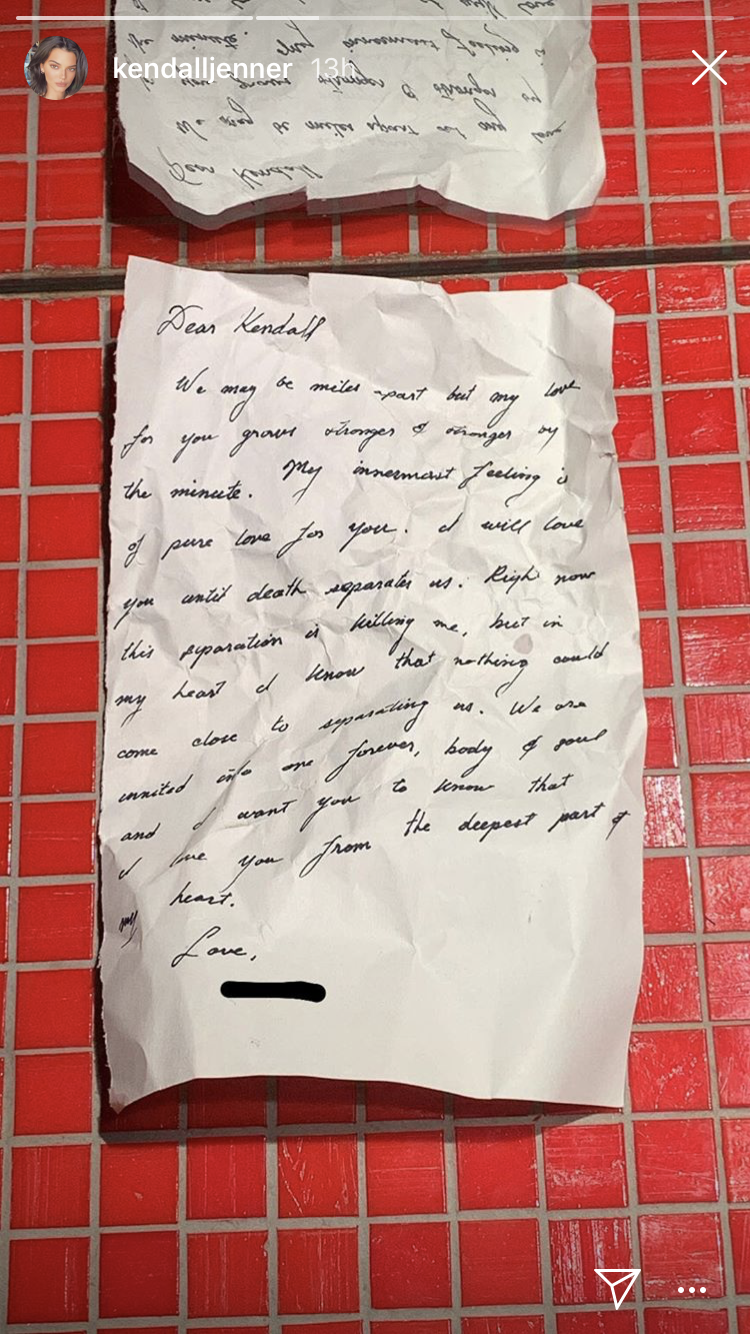 kendalljenner 13h
Dear Kendall
We may be miles apart but my love
for you grows stronger & stronger by
the minute. My innermost feeling is
of pure love for you. I will love
you until death separates us. Righ now
this separation is killing me, but in
my heart I know that nothing could
come close to separating us. We are
unnited into one forever, body & soul
and I want you to know that
I love you from the deepest part of
my heart.
Love,